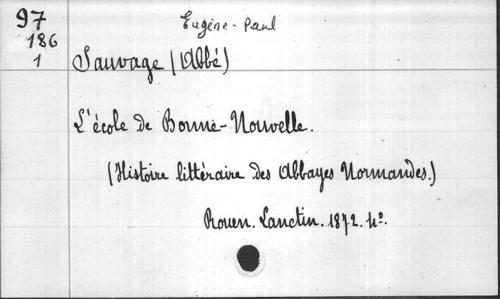 97
186
1
Eugène-Paul
Sauvage (Abbé)
L'école de Bonne-Nouvelle.
(Histoire littéraire des Abbayes Normandes.)
Rouen. Lanctin. 1872. 4º.